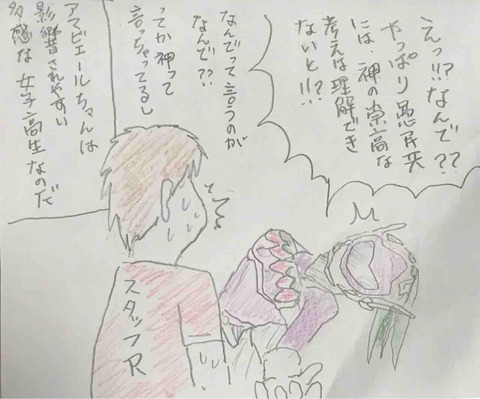 えっ!!?なんで??
やっぱり愚民共
には、神の崇高な
考えは理解でき
ないと!!?
なんでって言うのが
なんで??
ってか神って
言っちゃってるし
アマビエールちゃんは
影響されやすい
多感な女子高生なのだ
スタッフR